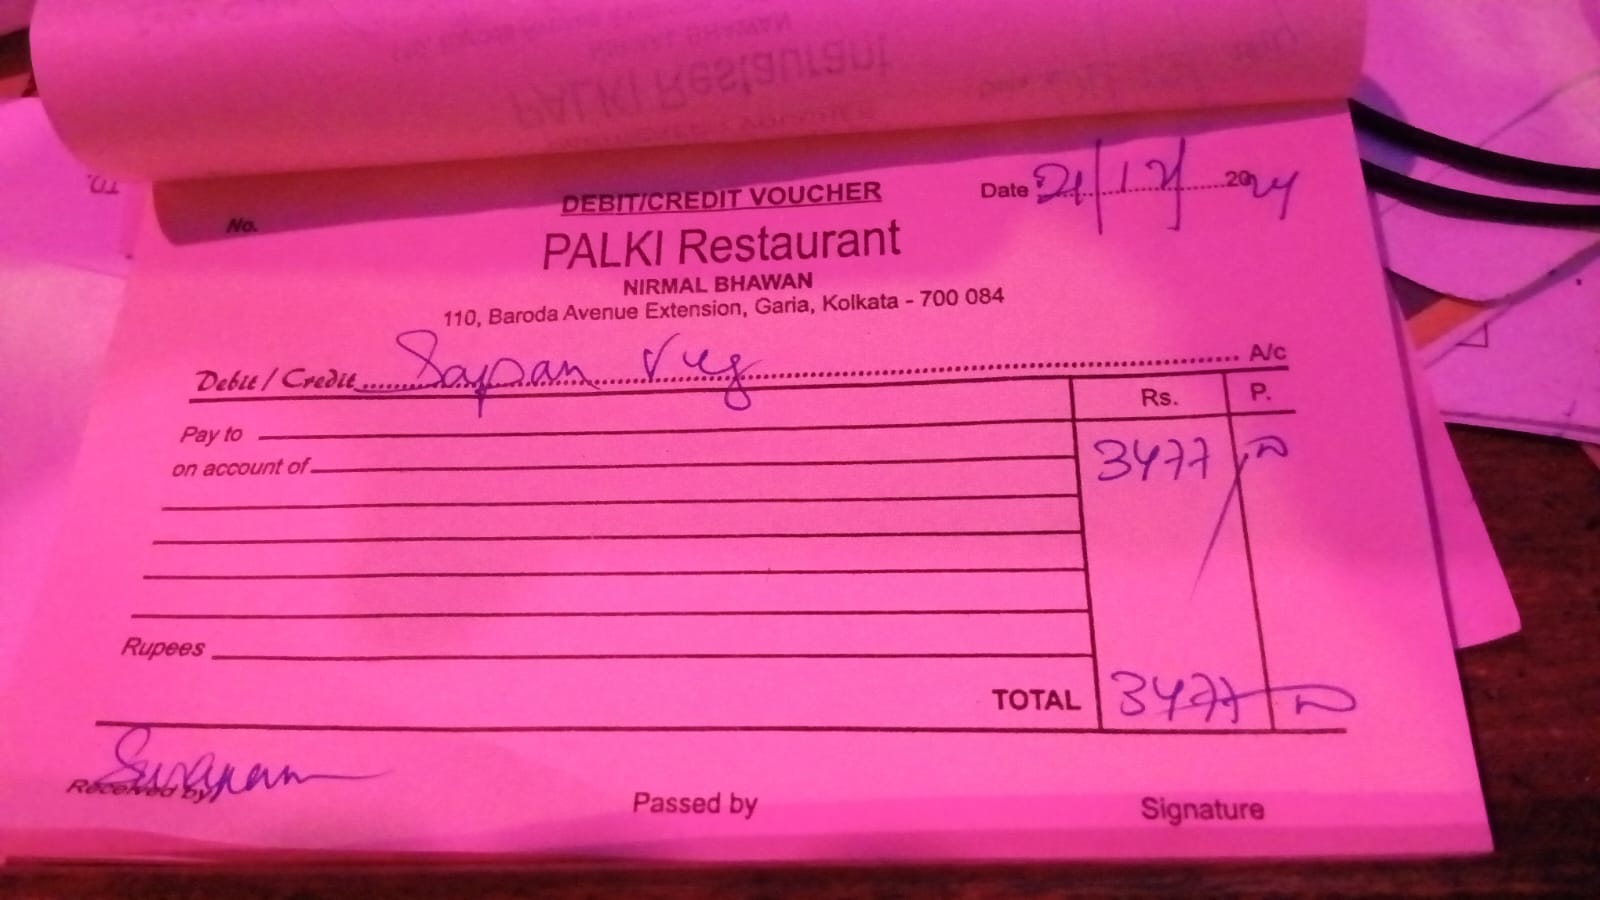 DEBIT/CREDIT VOUCHER
No.
Date 21/12/2024
PALKI Restaurant
NIRMAL BHAWAN
110, Baroda Avenue Extension, Garia, Kolkata - 700 084
Debit / Credit Sapan Veg A/c
Rs. P.
Pay to 3477
on account of
Rupees
TOTAL 3477
Swapan
Received by
Passed by
Signature